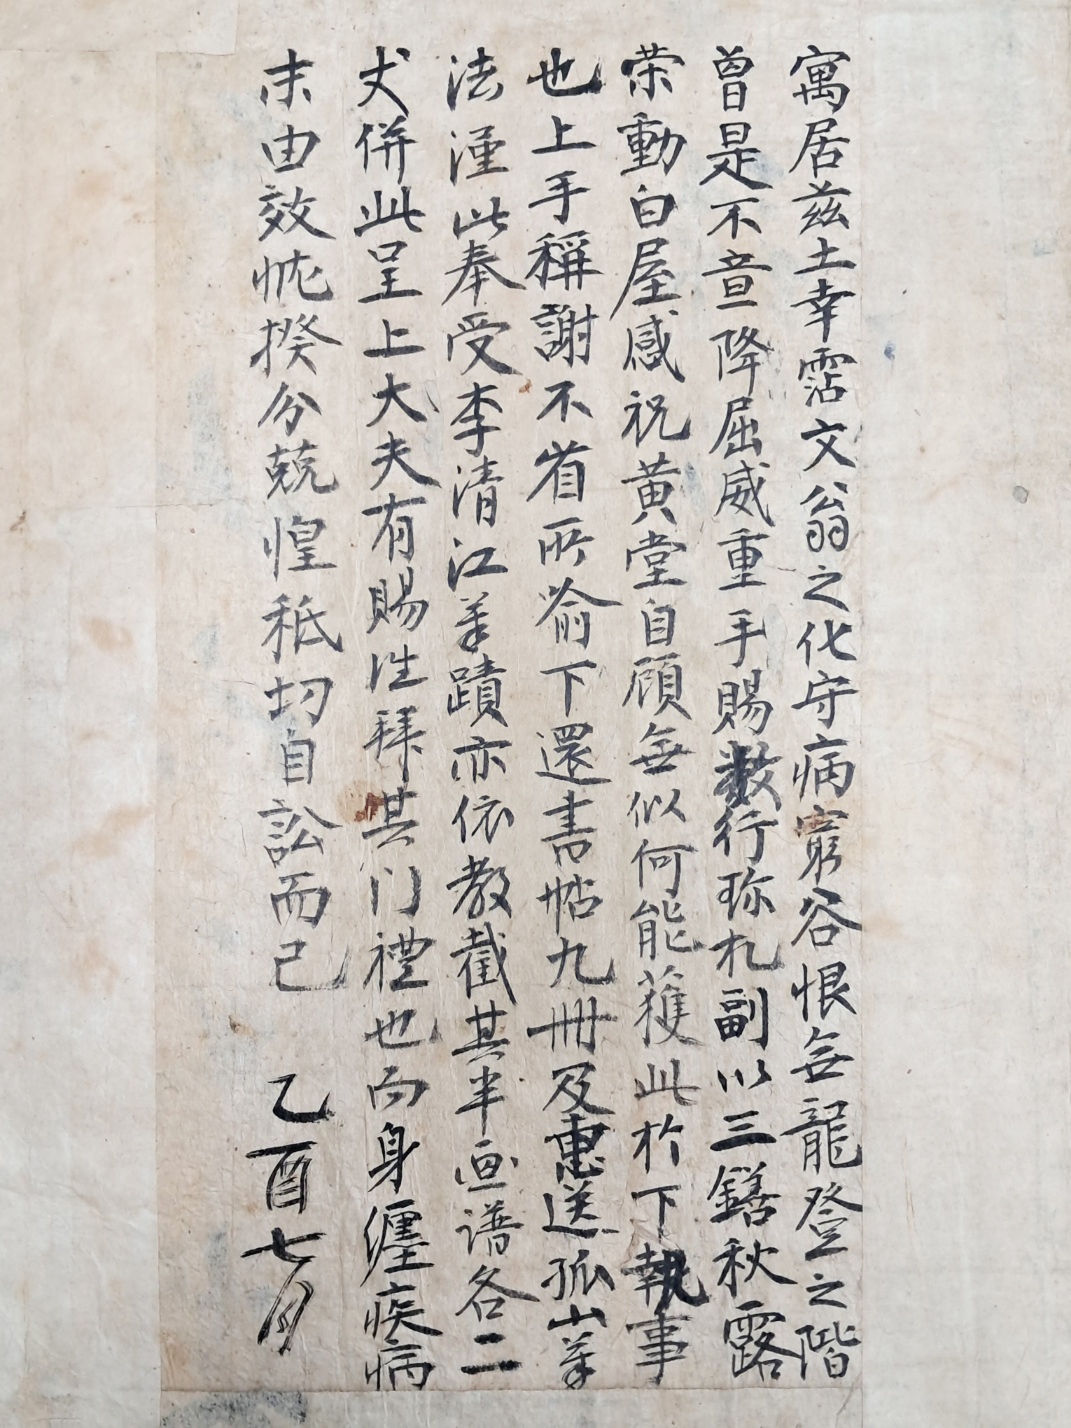 寓居茲土幸霑文翁之化守病窮谷恨無龍登之階
曾是不意降屈威重手賜數行珍札副以三鐥秋露
荣動白屋感祝黃堂自顧無似何能獲此於下執事
也上手稱謝不省所喩下還書帖九冊及惠送孤山筆
法謹此奉受李清江筆蹟亦依教截其半画谱各二
丈併此呈上大夫有賜往拜其门禮也而身纏疾病
末由效忱揆分兢惶秪切自訟而已
乙酉七月